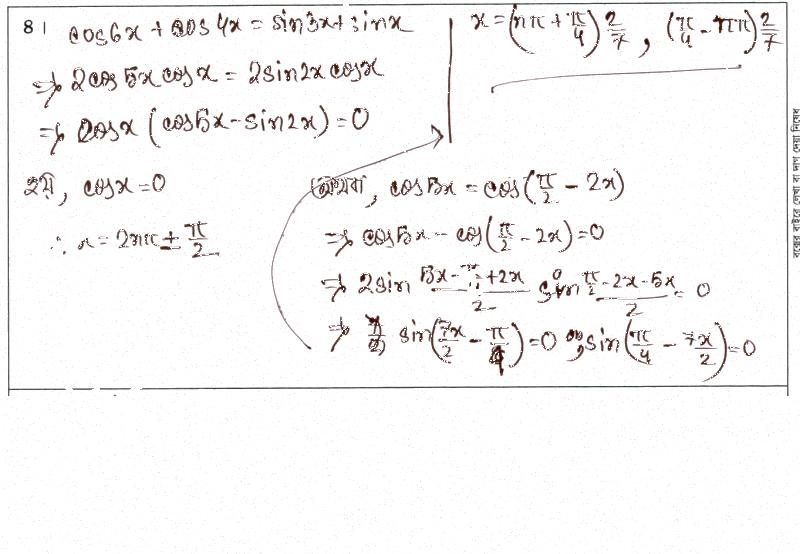 8।
cos6x + cos4x = sin3x + sinx
⇒ 2cos5x cosx = 2sin2x cosx
⇒ cosx (cos5x - sin2x) = 0
হয়, cosx = 0
∴ x = 2nπ ± π/2
অথবা, cos5x = cos(π/2 - 2x)
⇒ cos5x - cos(π/2 - 2x) = 0
⇒ 2sin (5x - π/2 + 2x)/2 sin (π/2 - 2x - 5x)/2 = 0
⇒ sin(7x/2 - π/4) = 0 sin(π/4 - 7x/2) = 0
x = (nπ + π/4) 2/7 , (π/4 - nπ) 2/7
বক্সের বাইরে লেখা বা দাগ দেয়া নিষেধ